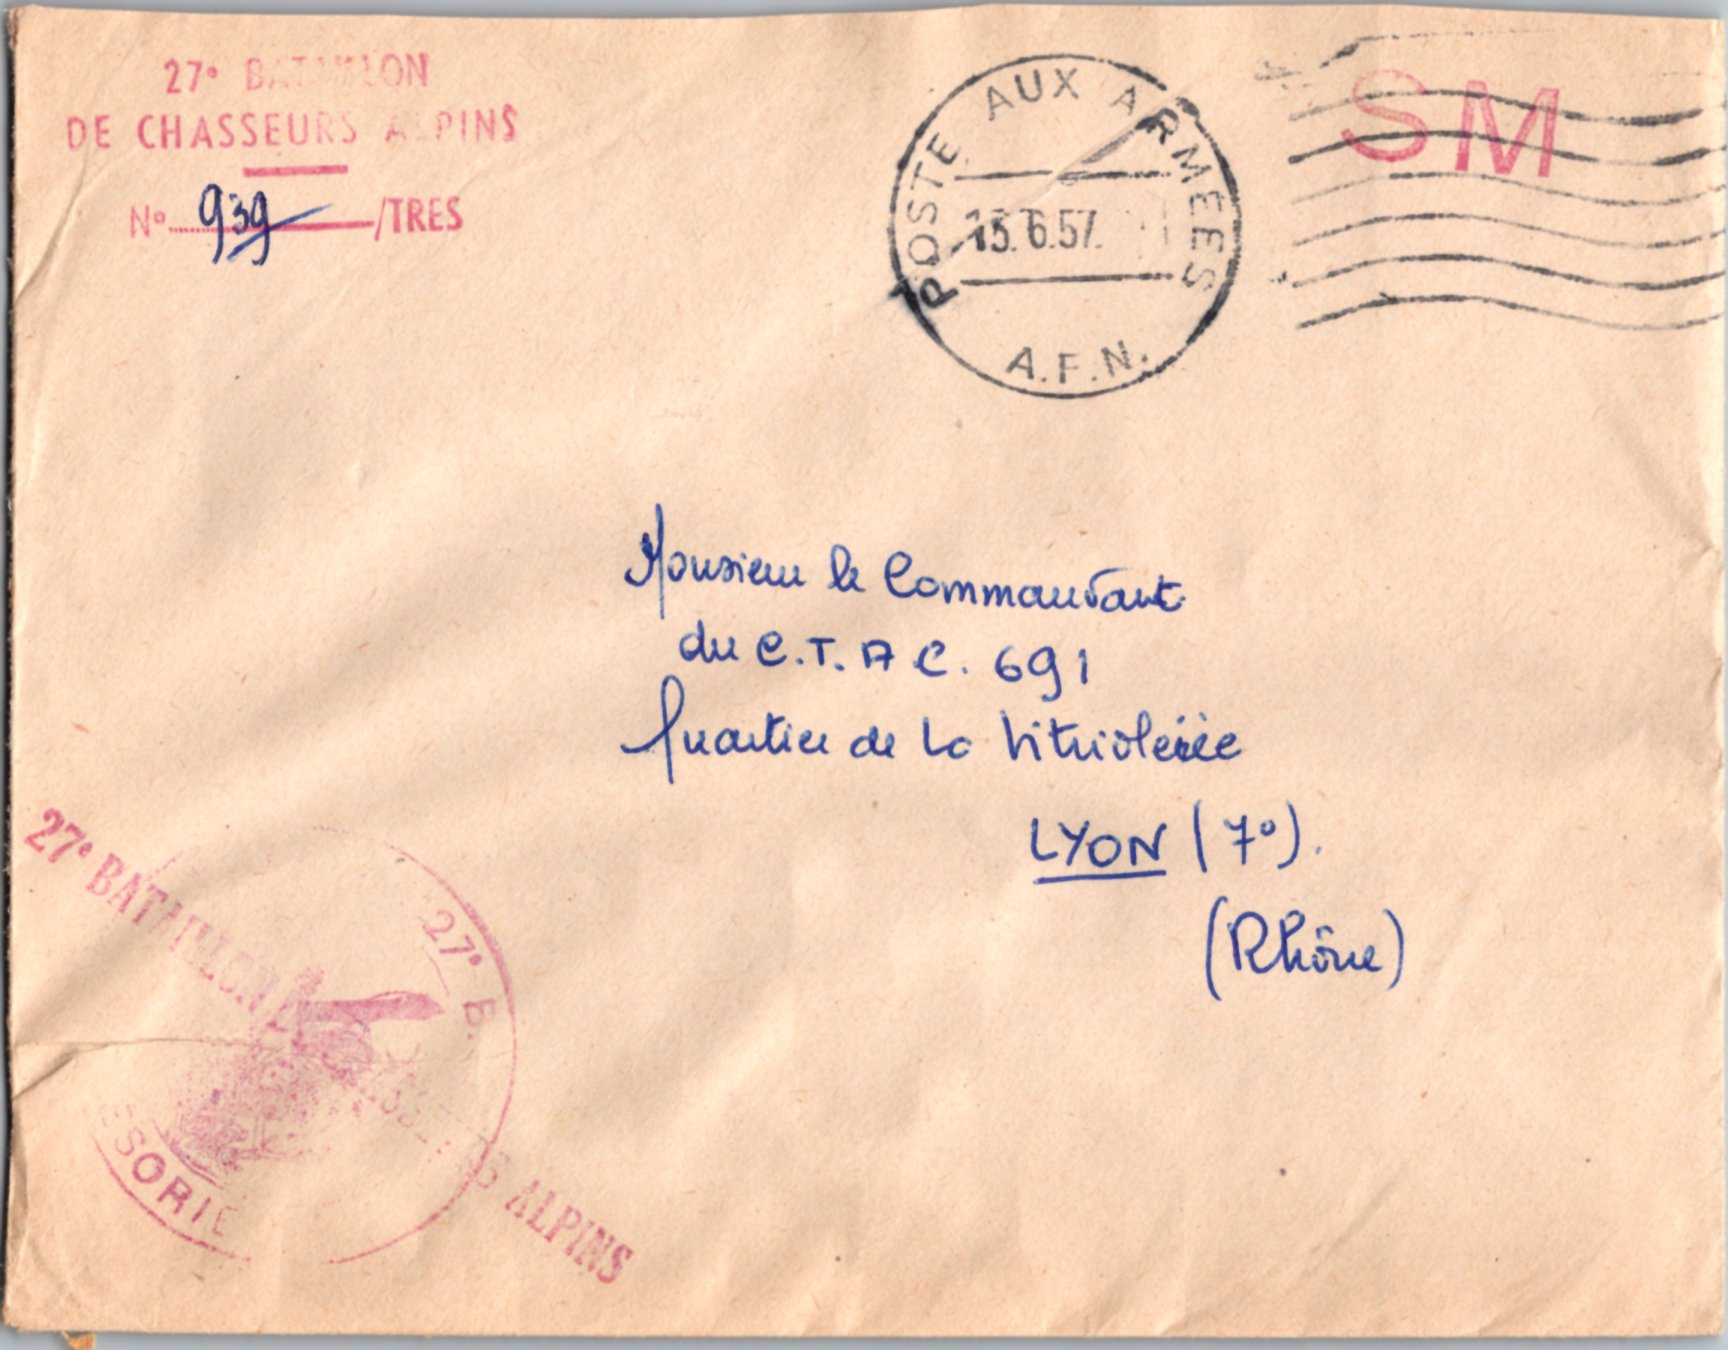 27e BATAILLON
DE CHASSEURS ALPINS
No 939 /TRES
POSTE AUX ARMÉES
15.6.57
A.F.N.
SM
Monsieur le Commandant
du C.T.A C. 691
Quartier de la Vitriolerie
LYON (7e).
(Rhône)
27e BATAILLON ALPINS
27e B.
SORIE